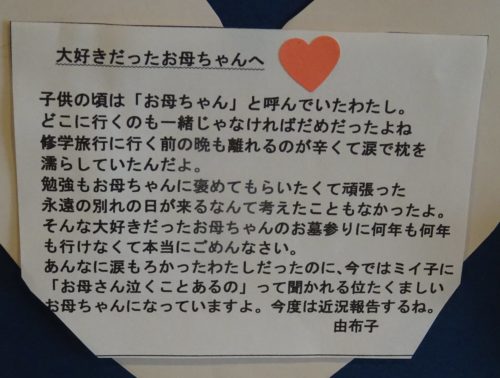 大好きだったお母ちゃんへ
子供の頃は「お母ちゃん」と呼んでいたわたし。
どこに行くのも一緒じゃなければだめだったよね
修学旅行に行く前の晩も離れるのが辛くて涙で枕を
濡らしていたんだよ。
勉強もお母ちゃんに褒めてもらいたくて頑張った
永遠の別れの日が来るなんて考えたこともなかったよ。
そんな大好きだったお母ちゃんのお墓参りに何年も何年
も行けなくて本当にごめんなさい。
あんなに涙もろかったわたしだったのに、今ではミイ子に
「お母さん泣くことあるの」って聞かれる位たくましい
お母ちゃんになっていますよ。今度は近況報告するね。
由布子